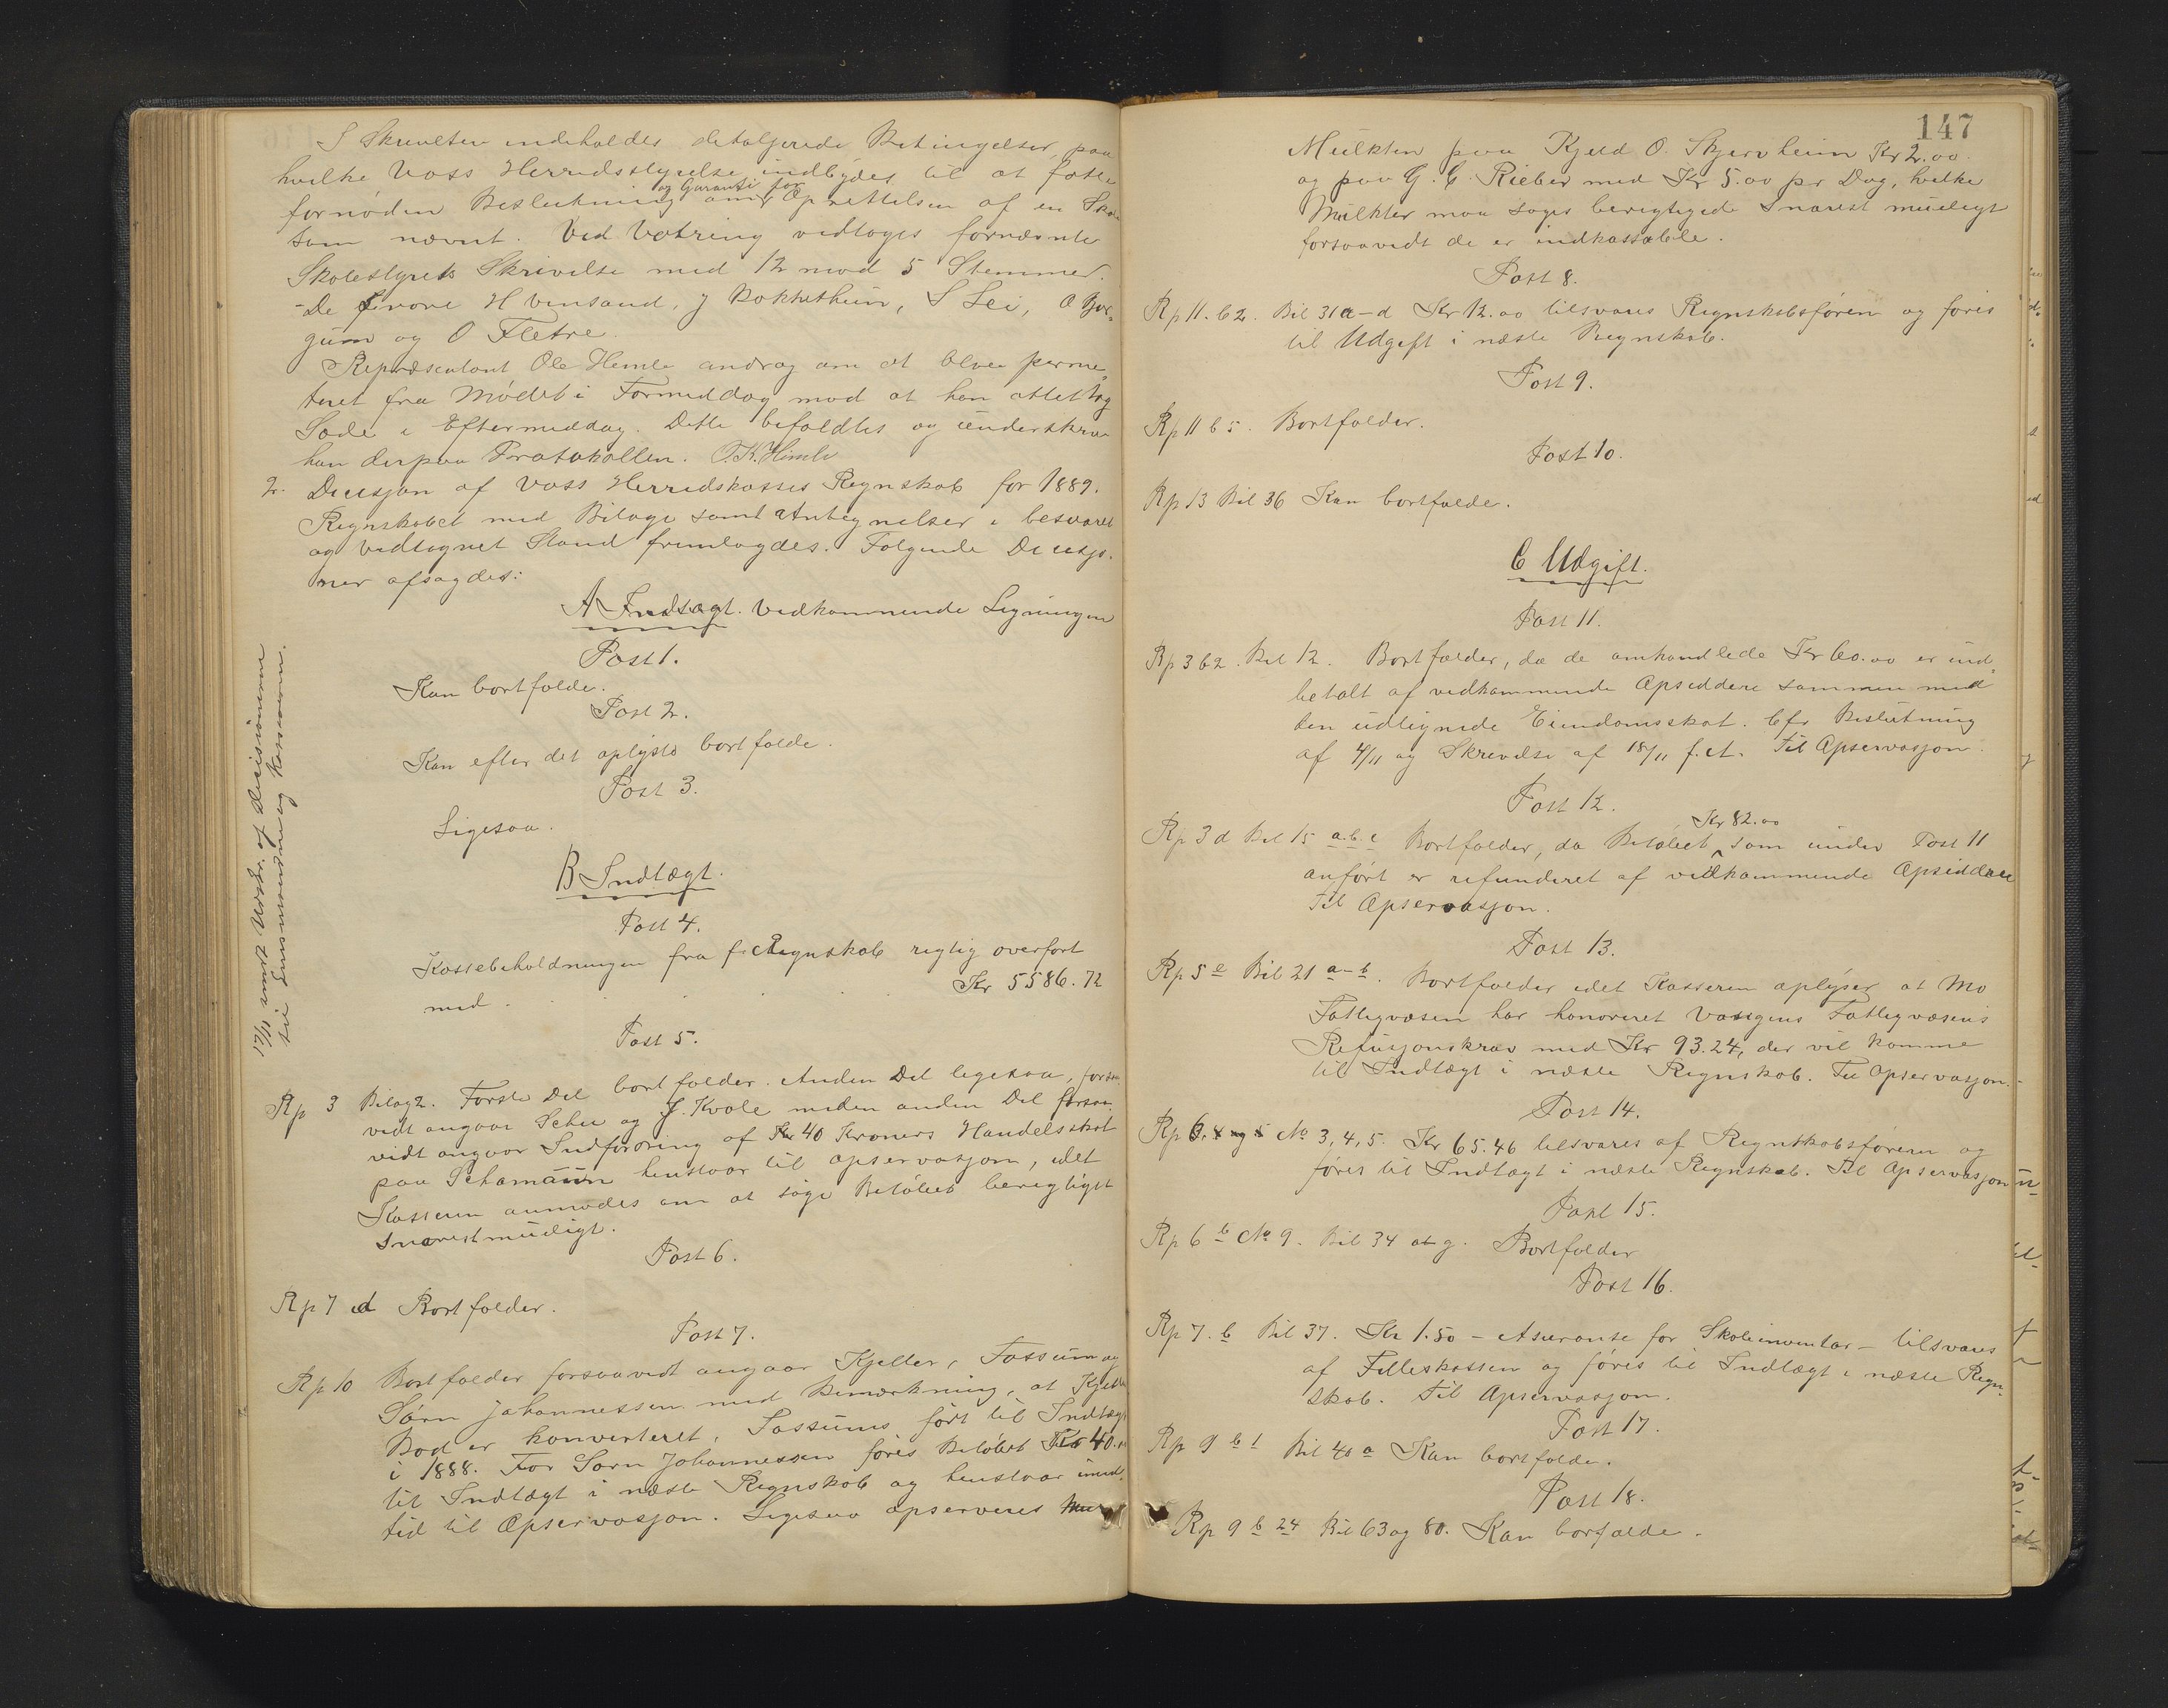 I Skrivelsen indeholdes detaljerede Betingelser, paa
hvilke Voss Herredsstyrelse indbydes til at fatte
fornøden Beslutning om og Garanti for Oprettelsen af en Skole
som nævnt. Ved Votering vedtoges fornævnte
Skolestyrets Skrivelse med 12 mod 5 Stemmer.
- De 5 vare H Vinsand, J Rokkethun, S Lei, O Gjer-
gum og O Fletre.
Repræsentant Ole Himle androg om at blive perme-
teret fra Mødet i Formiddag mod at han atter tog
Sæde i Eftermiddag. Dette bifaldtes og underskrev
han derpaa Protokollen. O.K. Himle
2. Decisjon af Voss Herredskasses Regnskab for 1889.
Regnskabet med Bilage samt Antegnelser i besvaret
og vedtegnet Stand fremlagdes. Følgende Decisjo-
ner afsagdes:
A Indtægt. Vedkommende Ligningen
Post 1.
Kan bortfalde.
Post 2.
Kan efter det oplyste bortfalde.
Post 3.
Ligesaa.
B Indtægt.
Post 4.
Kassebeholdningen fra f. A Regnskab rigtig overført
med . . . . . Kr 5586.72
Post 5.
Rp 3 Bilag 2. Første Del bortfalder. Anden Del ligesaa, forsaa-
vidt angaar Schee og J. Kvale meden anden Del forsaa-
vidt angaar Indfordring af Kr 40 Kroners Handelsskat
paa Schamaun henstaar til Apservasjon, idet
Kasseren anmodes om at søge Beløbet berigtiget
snarest muligt.
Post 6.
Rp 7 d Bortfalder.
Post 7.
Rp 10 Bortfalder forsaavidt angaar Kjeller, Fossum og
Søren Johannessen med Bemærkning, at Kjellers
Bod er konverteret, Fossums ført til Indtægt
i 1888. For Sørn Johannessen føres Beløbet Kr 40.00
til Indtægt i næste Regnskab og henstaar imid-
tid til Apservasjon. Ligesaa apserveres
17/11 sendt Udskr. af Decisionerne
til Lensmændene og Kasseren.
147
Mulkten paa Kjeld O. Skjervheim Kr 2.00
og paa G. C. Rieber med Kr 5.00 pr Dag, hvilke
Mulkter maa søges berigtigede snarest muligt
forsaavidt de er indkassable.
Post 8.
Rp 11. b 2. Bil 31 a-d Kr 12.00 tilsvares Regnskabsføren og føres
til Udgift i næste Regnskab.
Post 9.
Rp 11 b 5. Bortfalder.
Post 10.
Rp 13 Bil 36 Kan bortfalde.
C Udgift.
Post 11.
Rp 3 b 2. Bil 12. Bortfalder, da de omhandlede Kr 60.00 er ind-
betalt af vedkommende Apsiddere sammen med
den udlignede Eiendomsskat. Cfr Beslutning
af 4/11 og Skrivelse af 18/11 f. A. Til Apservasjon.
Post 12.
Rp 3 d Bil 15 a.b.c Bortfalder, da Beløbet Kr 82.00 som under Post 11
anført er refunderet af vedkommende Apsiddere
Til Apservasjon.
Post 13.
Rp 5 e Bil 21 a-b. Bortfalder idet Kasseren oplyser at Mo
Fattigvæsen har honoreret Vangens Fattigvæsens
Refusjonskrav med Kr 93.24, der vil komme
til Indtægt i næste Regnskab. Til Apservasjon.
Post 14.
Rp 6. 4 og 5 No 3, 4, 5. Kr 65.46 tilsvares af Regnskabsføreren og
føres til Indtægt i næste Regnskab. Til Apservasjon
Post 15.
Rp 6 b No 9. Bil 34 a-g. Bortfalder
Post 16.
Rp 7. b Bil 37. Kr 1.50 - Asuranse for Skoleinventar - tilsvares
af Filleskassen og føres til Indtægt i næste Regn-
skab. Til Apservasjon.
Post 17.
Rp 9 b 1 Bil 40 a Kan bortfalde.
Post 18.
Rp 9 b 24 Bil 63 og 80. Kan borfalde.